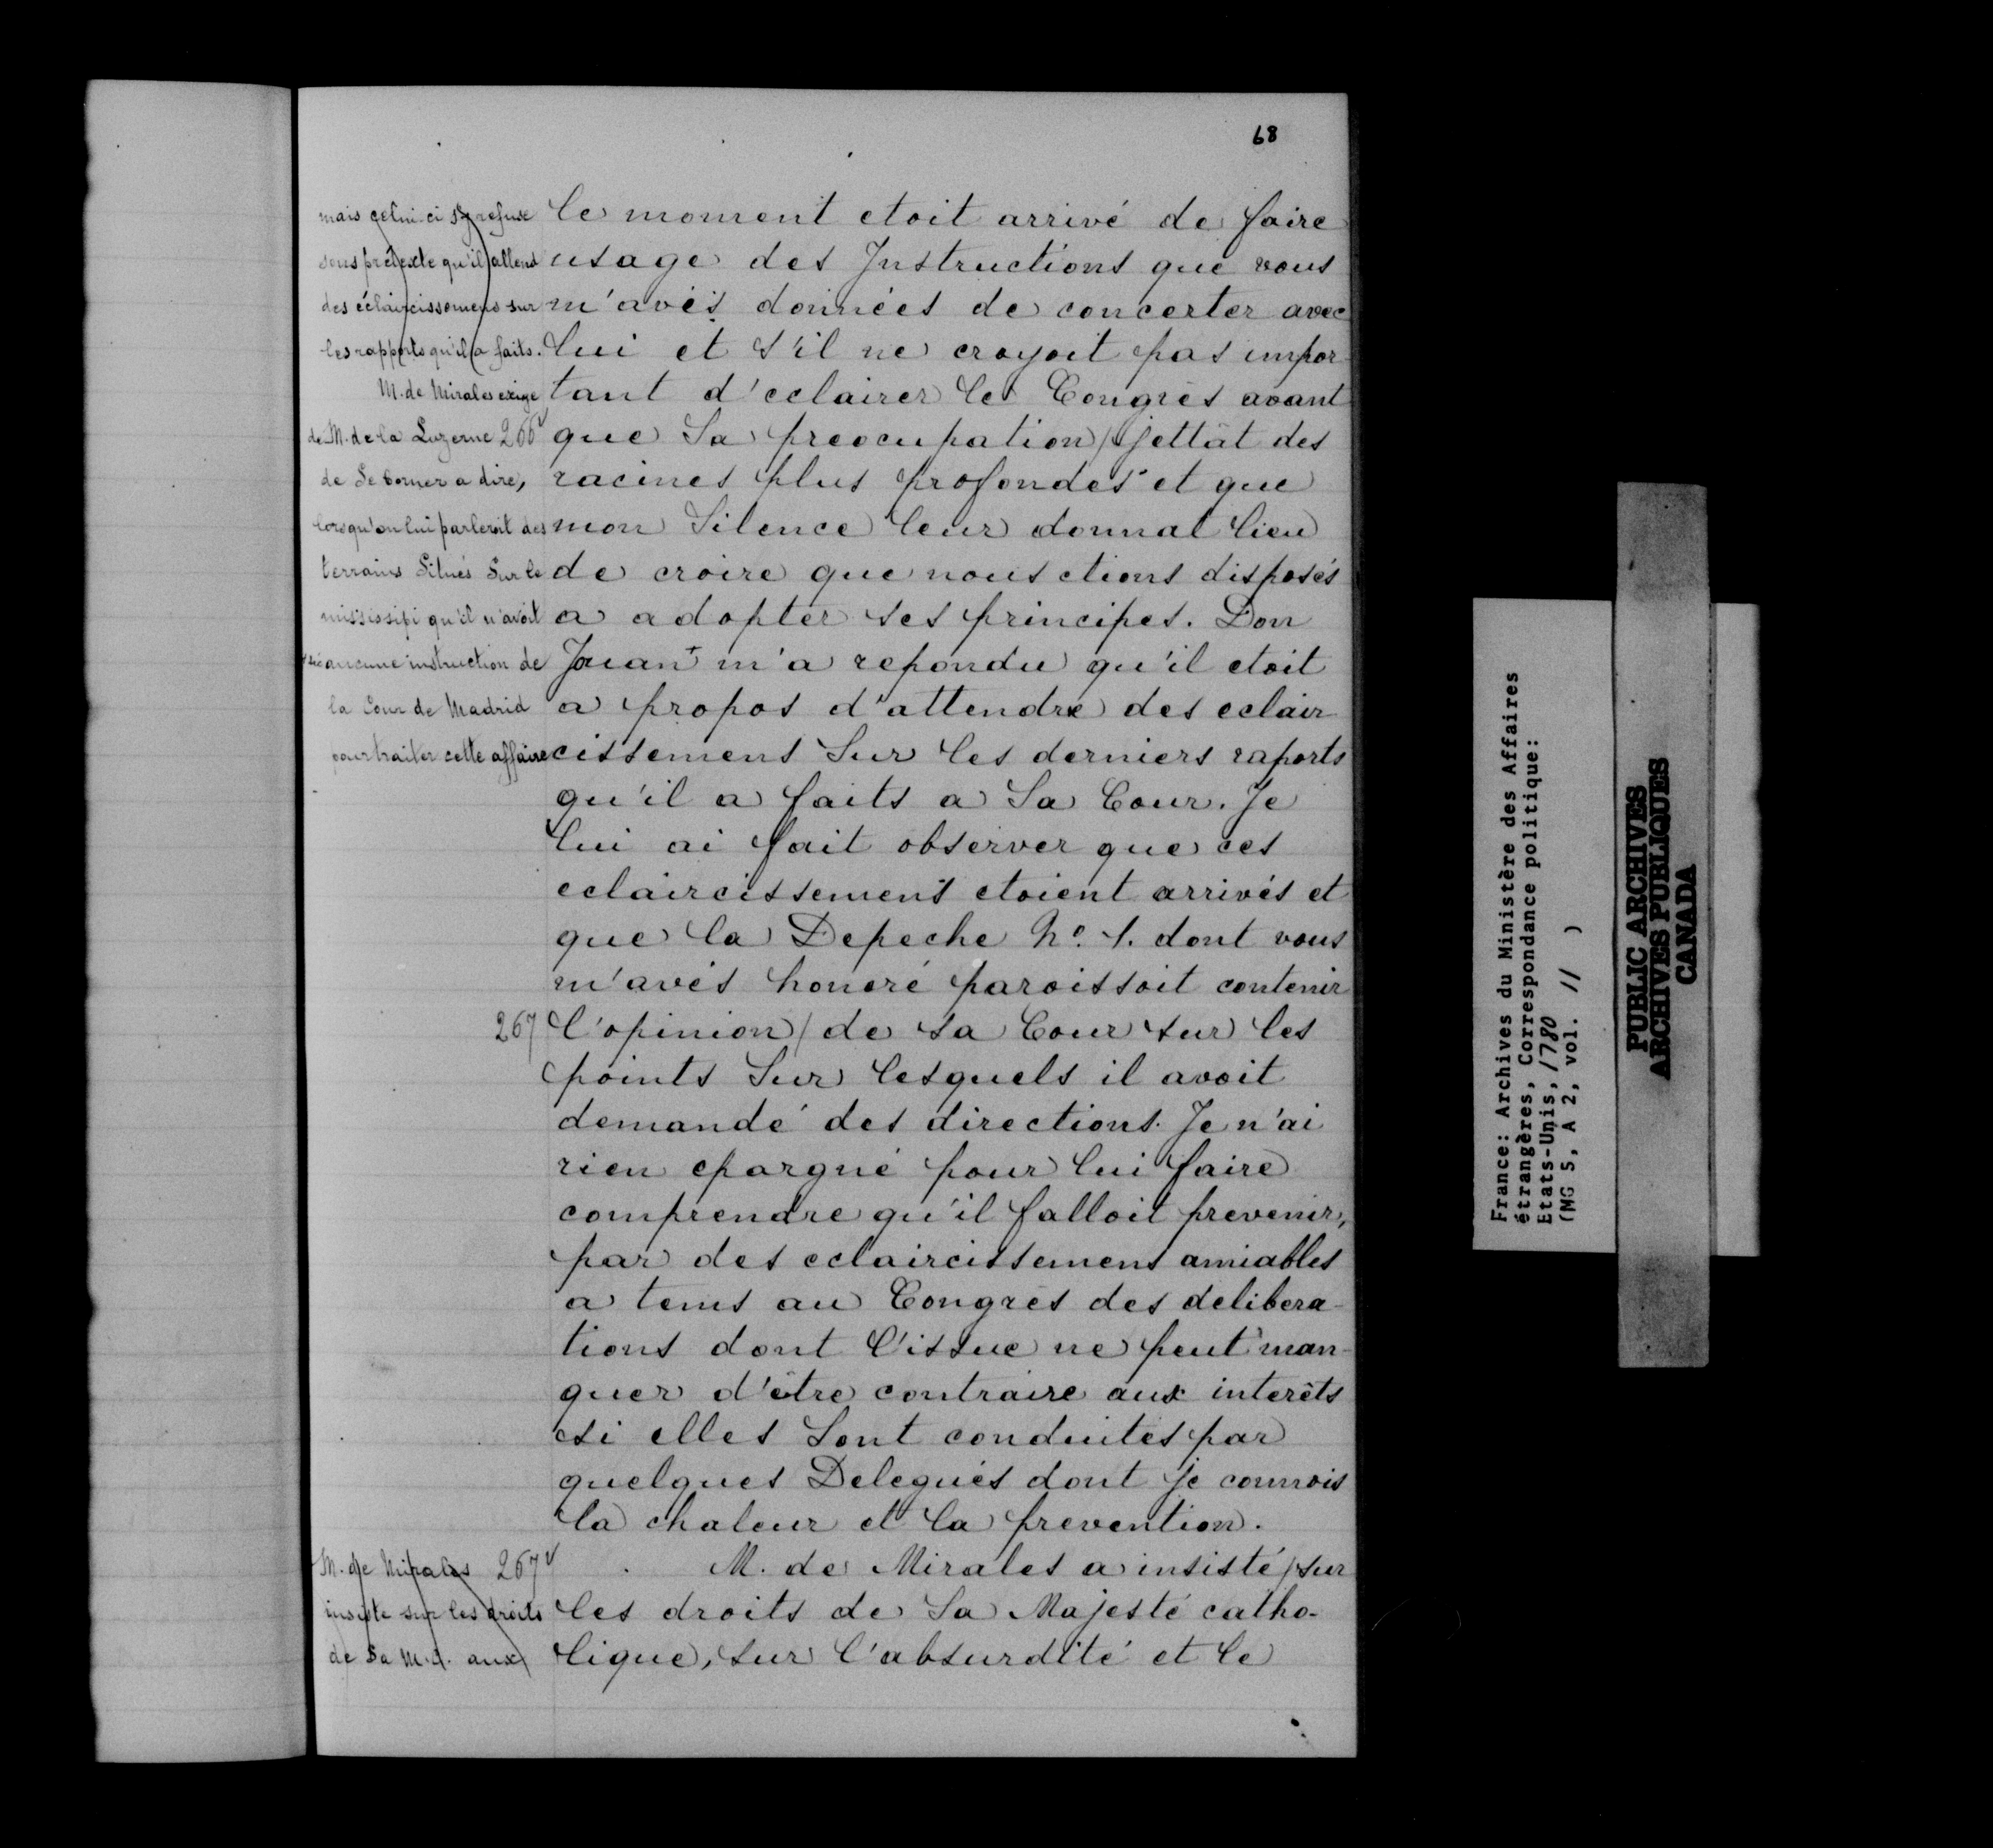 68
mais celui-ci s'y refuse
sous prétexte qu'il attend
des éclaircissemens sur
les rapports qu'il a faits.
M. de Mirales exige
de M. de la Luzerne 266v
de Se borner a dire,
lorsqu'on lui parleroit des
terrains Situés Sur le
mississipi qu'il n'avoit
aucune instruction de
la Cour de Madrid
pour traiter cette affaire
le moment etoit arrivé de faire
usage des Instructions que vous
m'avés données de concerter avec
lui et s'il ne croyoit pas impor-
tant d'eclairer le Congrès avant
que Sa preocupation / jettât des
racines plus profondes et que
mon Silence leur donnat lieu
de croire que nous etions disposés
a adopter ses principes. Don
Jouan + m'a repondu qu'il etoit
a propos d'attendre des eclair
cissemens Sur les derniers raports
qu'il a faits a Sa Cour. Je
lui ai fait observer que ces
eclaircissemens etoient arrivés et
que la Depeche No. 1. dont vous
m'avés honoré paroissoit contenir
267 l'opinion / de sa Cour sur les
points Sur lesquels il avoit
demandé des directions. Je n'ai
rien epargné pour lui faire
comprendre qu'il falloit prevenir,
par des eclaircissemens amiables
a tems au Congrès des delibera-
tions dont l'issue ne peut man-
quer d'être contraire aux interêts
si elles Sont conduites par
quelques Delegués dont je connois
la chaleur et la prevention.
M. de Mirales 267v
insiste sur les droits
de Sa M.C. aux
M. de Mirales a insisté / sur
les droits de Sa Majesté catho-
lique, sur l'absurdité et le
France: Archives du Ministère des Affaires
étrangères, Correspondance politique:
Etats-Unis, 1780
(MG 5, A 2, vol. 11 )
PUBLIC ARCHIVES
ARCHIVES PUBLIQUES
CANADA